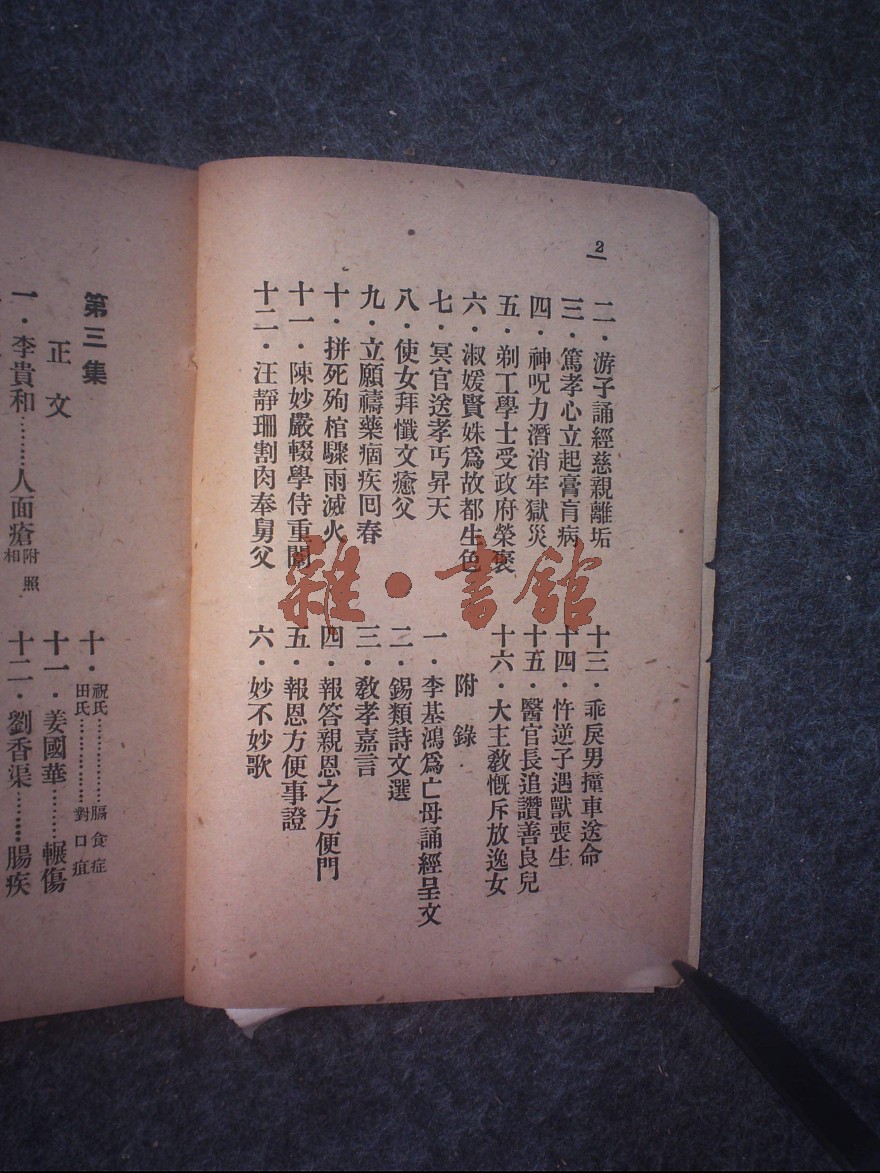 2
二．游子誦經慈親離垢
三．篤孝心立起膏肓病
四．神呪力潛消牢獄災
五．剃工學士受政府榮褒
六．淑媛賢姝爲故都生色
七．冥官送孝丐昇天
八．使女拜懺文癒父
九．立願禱藥痼疾回春
十．拼死殉棺驟雨滅火
十一．陳妙嚴輟學侍重闈
十二．汪靜珊割肉奉舅父
十三．乖戾男撞車送命
十四．忤逆子遇獸喪生
十五．醫官長追讚善良兒
十六．大主敎慨斥放逸女
附錄
一．李基鴻爲亡母誦經呈文
二．錫類詩文選
三．敎孝嘉言
四．報答親恩之方便門
五．報恩方便事證
六．妙不妙歌
第三集
正文
一．李貴和………人面瘡附照相
十．祝氏………膈食症
田氏………對口疽
十一．姜國華………輾傷
十二．劉香渠………腸疾
雜·書館